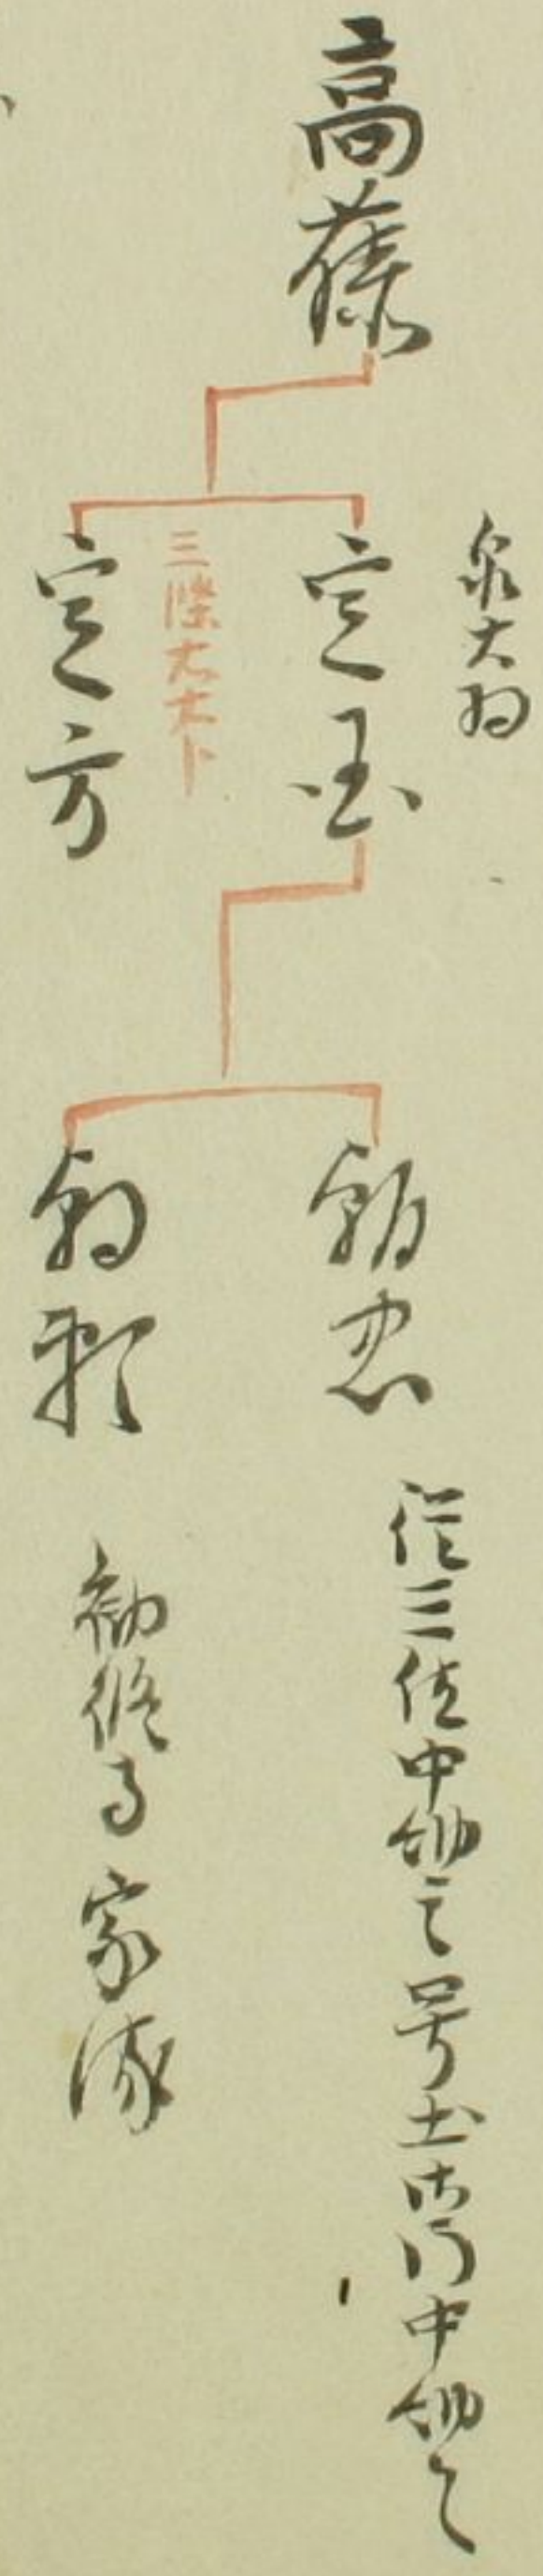 高藤
泉大将
定国
三條右大臣
定方
朝忠
従三位中納言号土御門中納言
朝頼
勧修寺家流